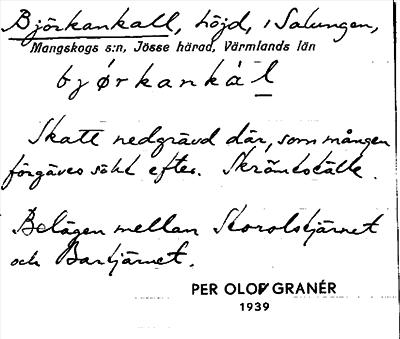 Björkankall, höjd, i Salungen,
Mangskogs s:n, Jösse härad, Värmlands län
bjørkankál
Skatt nedgrävd där, som mången
förgäves sökt efter. Skrömtställe.
Belägen mellan Storolstjärnet
och Bartjärnet.
PER OLOF GRANÉR
1939